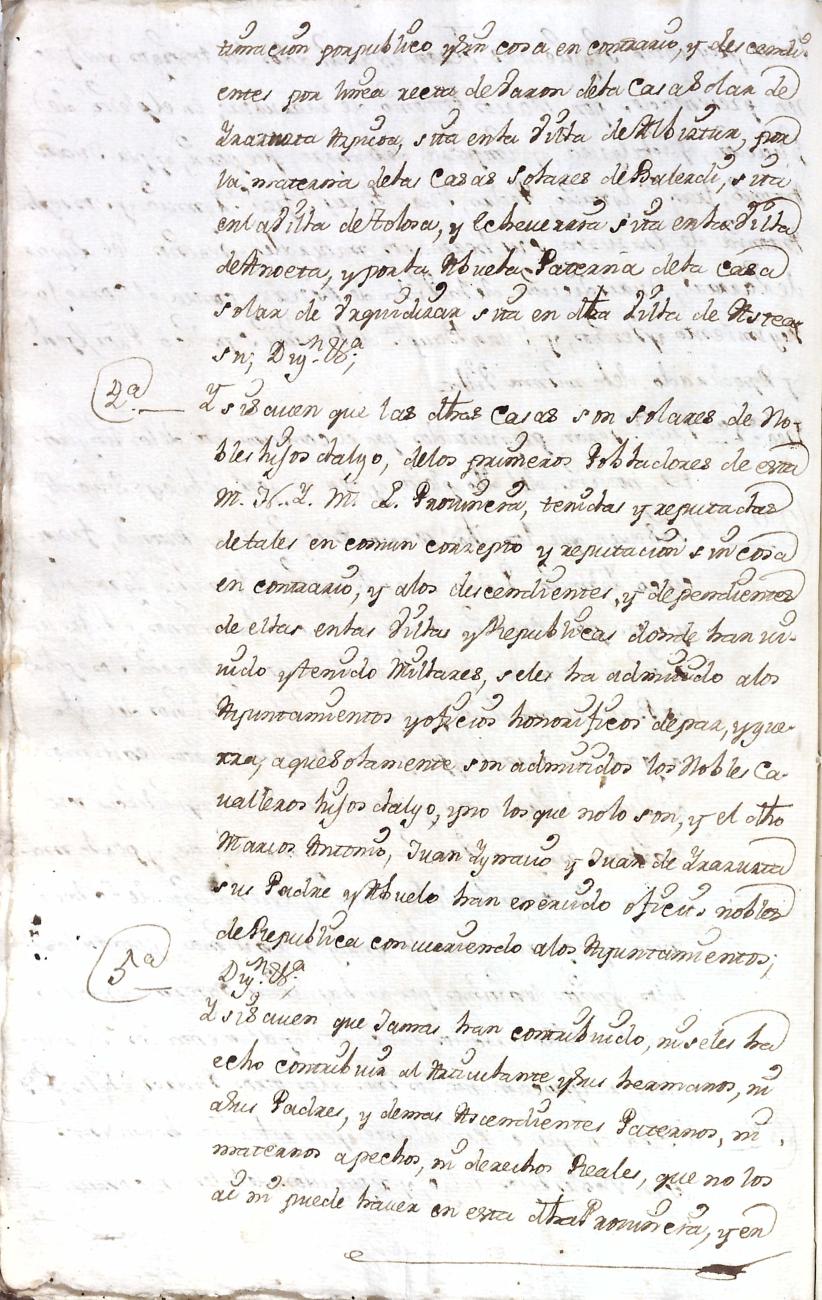 timacion por publico y sin cosa en contrario, y descendi-
entes por linea recta de Varon dela Casa Solar de
Yrarreta Azpicoa, sita en la Villa de Albiztur, por
la materna delas Casas Solares de Balerdi, sita
en la Villa de Tolosa, y Echeverria sita en la Villa
de Anoeta, y por la Abuela Paterna dela casa
solar de Yrquidizar sita en dha Villa de Astea-
su; Dign Vª;
4ª
Y si saven que las dhas casas son solares de No-
bles hijos dalgo, delos primeros Pobladores de esta
M. N. Y. M. L. Provincia, tenidas y reputadas
de tales en comun conzepto y reputacion sin cosa
en contrario, y alos descendientes, y dependientes
de ellas en las Villas y Republicas donde han vi-
vido y tenido Millares, seles ha admitido alos
Ayuntamientos y oficios honorificos de paz, y gue-
rra, a que solamente son admitidos los Nobles Ca-
valleros hijos dalgo, y no los que no lo son, y el dho
Marcos Antonio, Juan Ygnacio y Juan de Yrarreta
sus Padre y Abuelo han exercido oficios nobles
de Republica concurriendo alos Ayuntamientos;
Dign Vª
5ª
Y si saven que Jamas han contribuido, ni seles ha
echo contribuir al Articulante y sus hermanos, ni
a sus Padres, y demas Ascendientes Paternos, ni
maternos a pechos, ni derechos Reales, que no los
ai ni puede haver en esta dha Provincia, y en